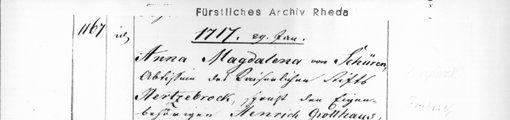 Fürstliches Archiv Rheda
1167
1717. 29. Jan.
Anna Magdalena von Schüren,
Äbtissin des Kaiserlichen Stifts
Hertzebrock, schenkt den Eigen-
behörigen Henrich Grolthaus,